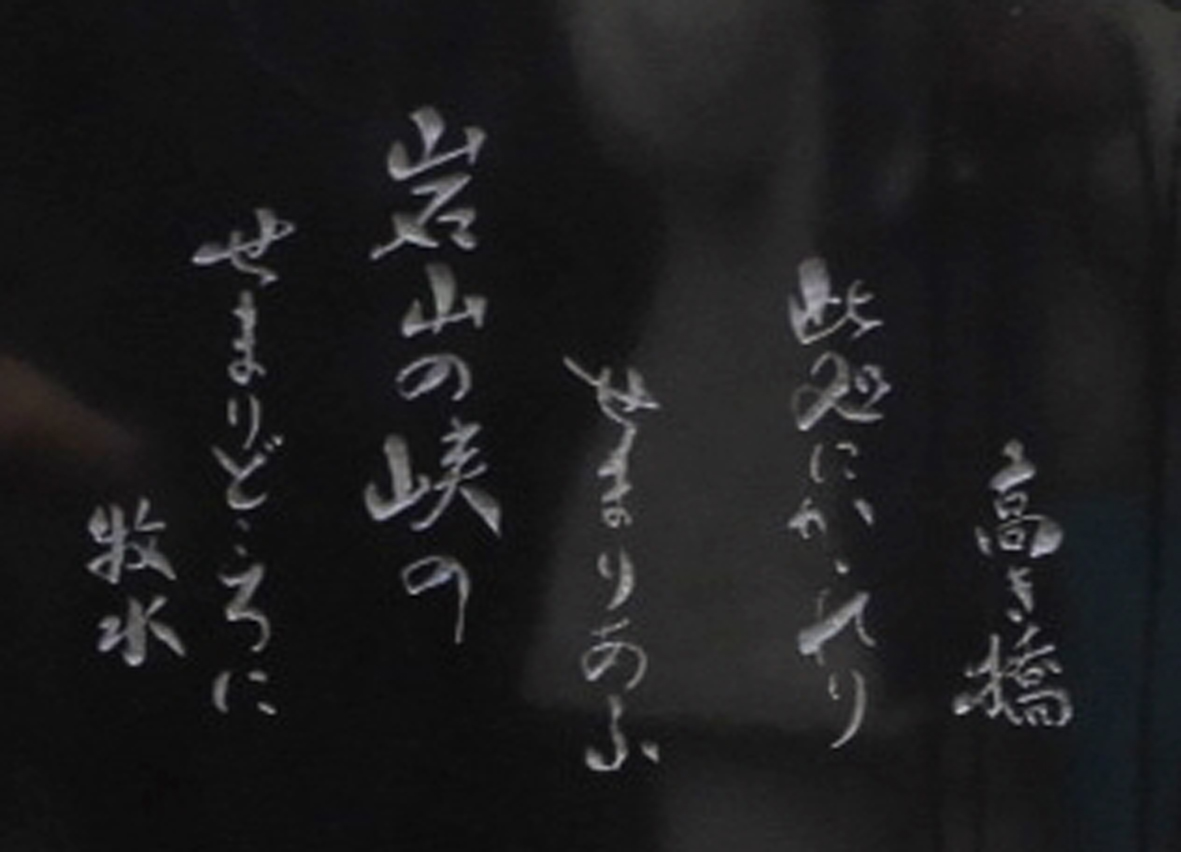 高き橋
此処にかゝれり
せまりあふ
岩山の峡の
せまりどころに
牧水